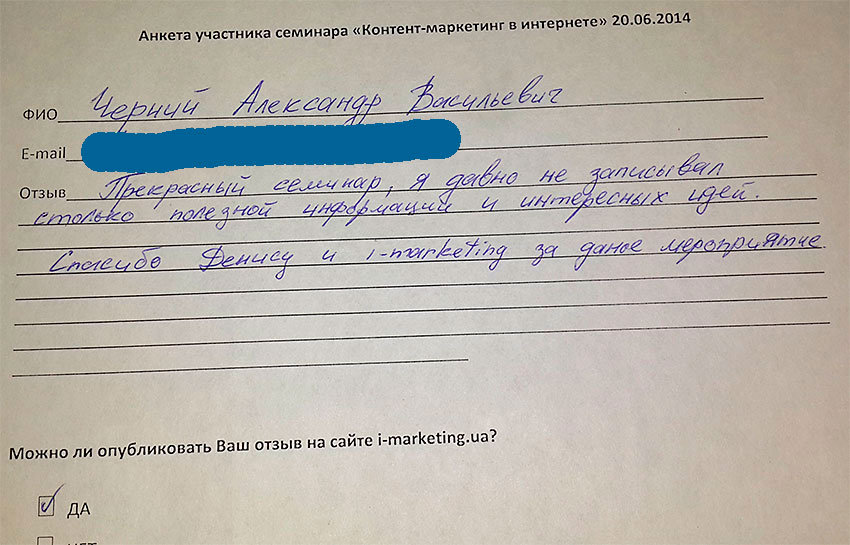 Анкета участника семинара «Контент-маркетинг в интернете» 20.06.2014
ФИО Черний Александр Васильевич
E-mail
Отзыв Прекрасный семинар, я давно не записывал
столько полезной информации и интересных идей.
Спасибо Денису и i-marketing за даное мероприятие
Можно ли опубликовать Ваш отзыв на сайте i-marketing.ua?
ДА
НЕТ